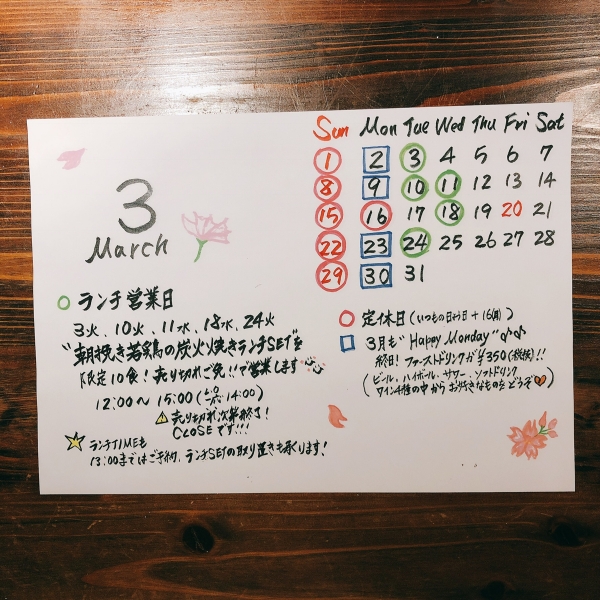 3
March
Sun Mon Tue Wed Thu Fri Sat
1 2 3 4 5 6 7
8 9 10 11 12 13 14
15 16 17 18 19 20 21
22 23 24 25 26 27 28
29 30 31
○ ランチ営業日
3火、10火、11水、18水、24火
"朝挽き若鶏の炭火焼きランチSET"を
限定10食!売り切れご免!!で営業します
12:00〜15:00(L.O 14:00)
売り切れ次第終了!
CLOSEです!!!
ランチTIMEも
13:00まではご予約、ランチSETの取り置きも承ります!
○ 定休日(いつもの日や月日+16(月))
□ 3月も"Happy Monday"♪♪
終日!ファーストドリンクが¥350(税抜)!!
(ビール、ハイボール、サワー、ソフトドリンク
ワイン4種の中からお好きなものをどうぞ)